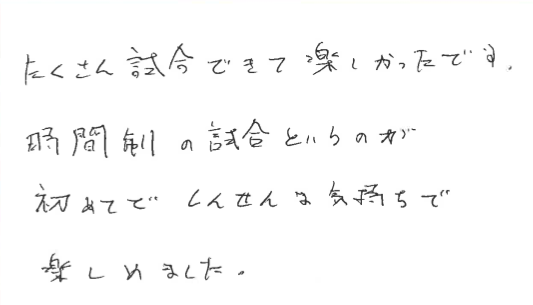 たくさん試合できて楽しかったです。
時間制の試合というのが
初めてで しんせんな気持ちで
楽しめました。